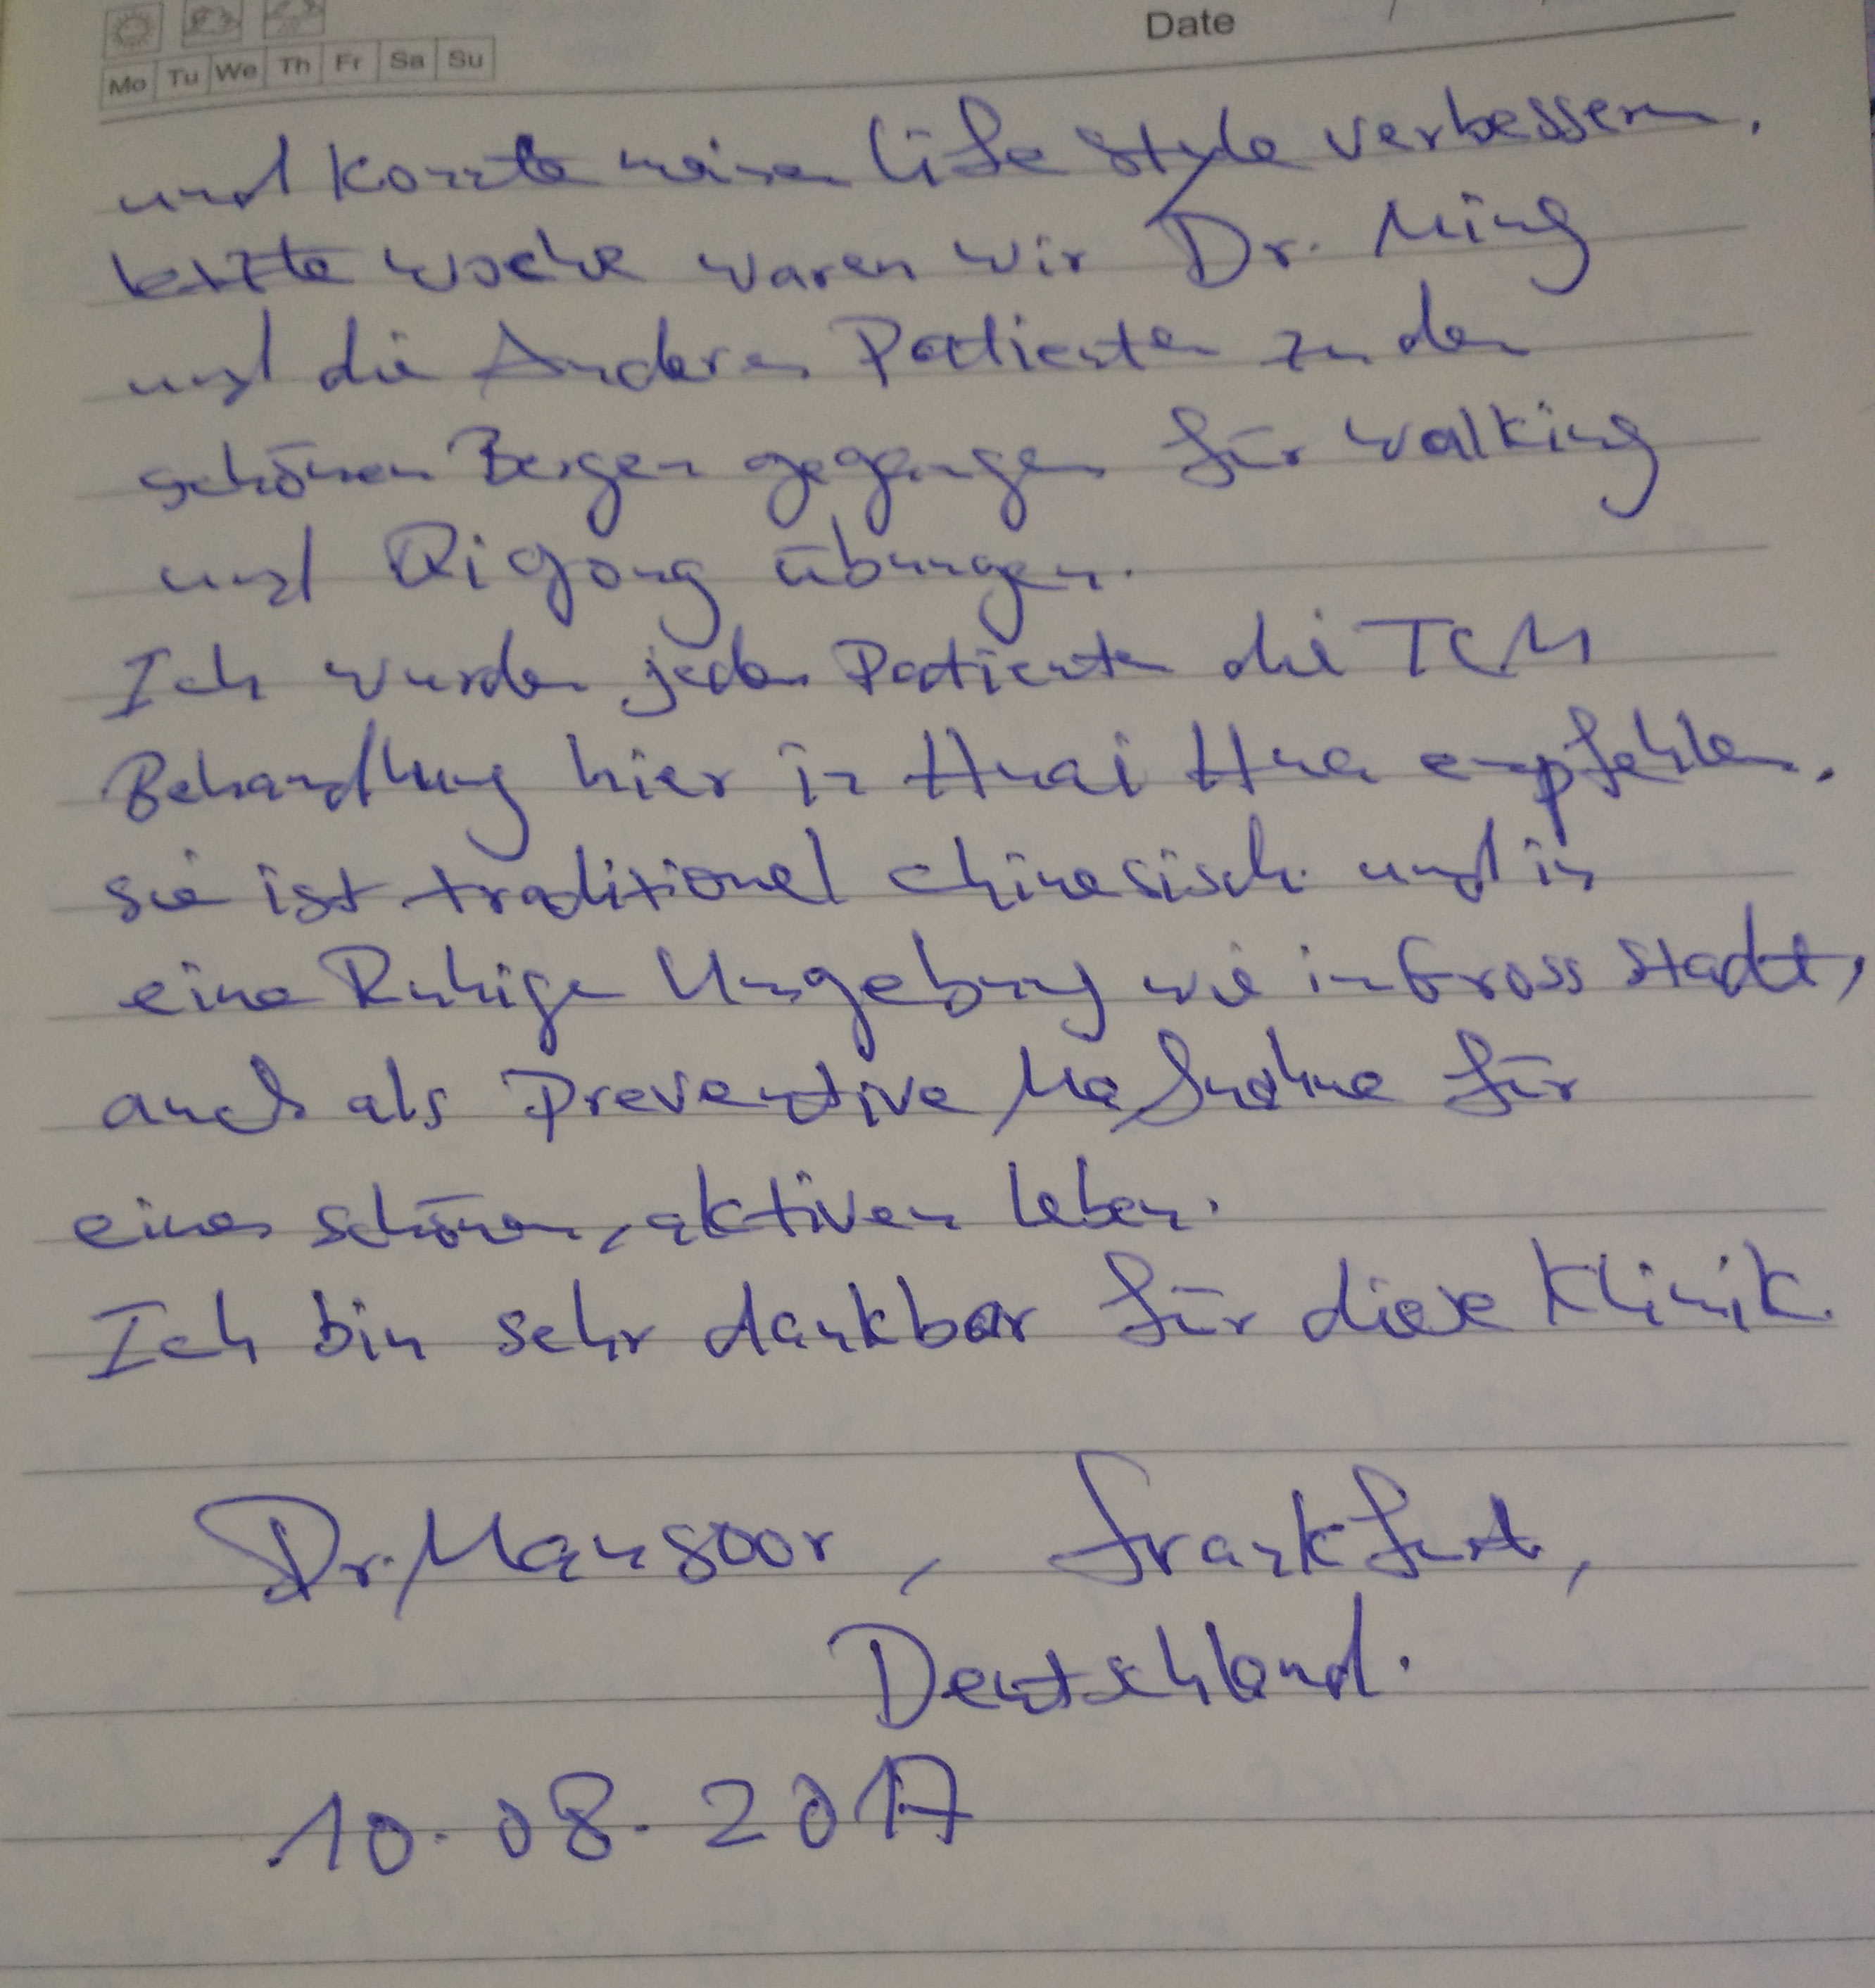 Date
Mo Tu We Th Fr Sa Su
und konnte meinen life style verbessern.
letzte woche waren wir Dr. Ming
und die Anderen Patienten zu den
schönen Bergen gegangen für walking
und Qi gong übungen.
Ich wurden jeden Patienten die TCM
Behandlung hier in Huai Hua empfehlen.
sie ist traditionel chinesisch und in
eine Ruhige Umgebung wie in Gross stadt,
auch als Preventive Maßnahme für
einen schönen, aktiven leben.
Ich bin sehr dankbar für diese Klinik.
Dr. Mansoor, frankfurt,
Deutschland.
10.08.2017